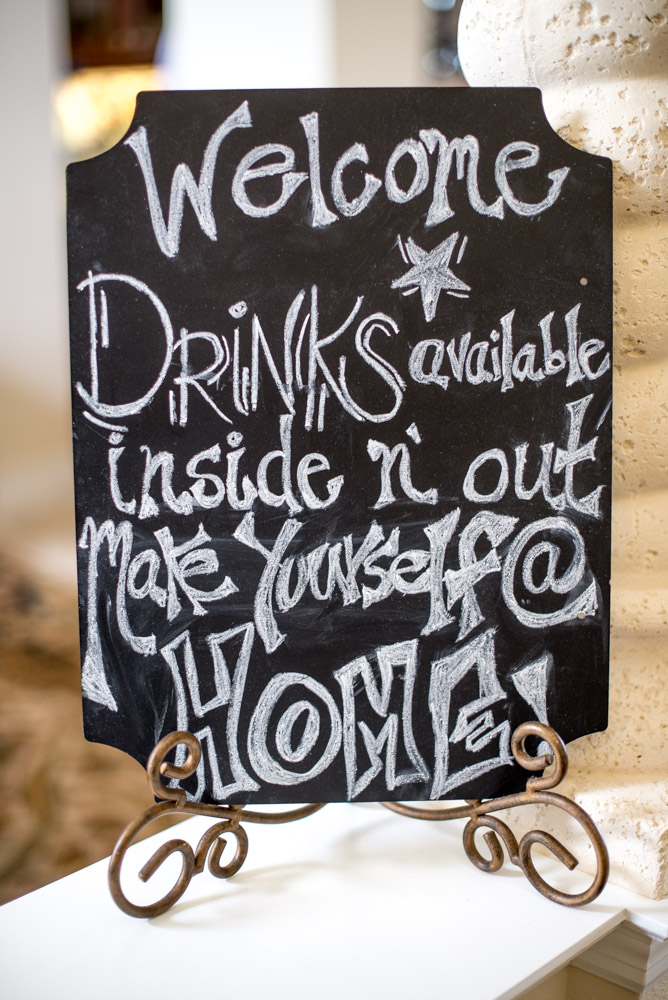 Welcome
DRiNKS available
inside n' out
Make Yourself @
HOME!